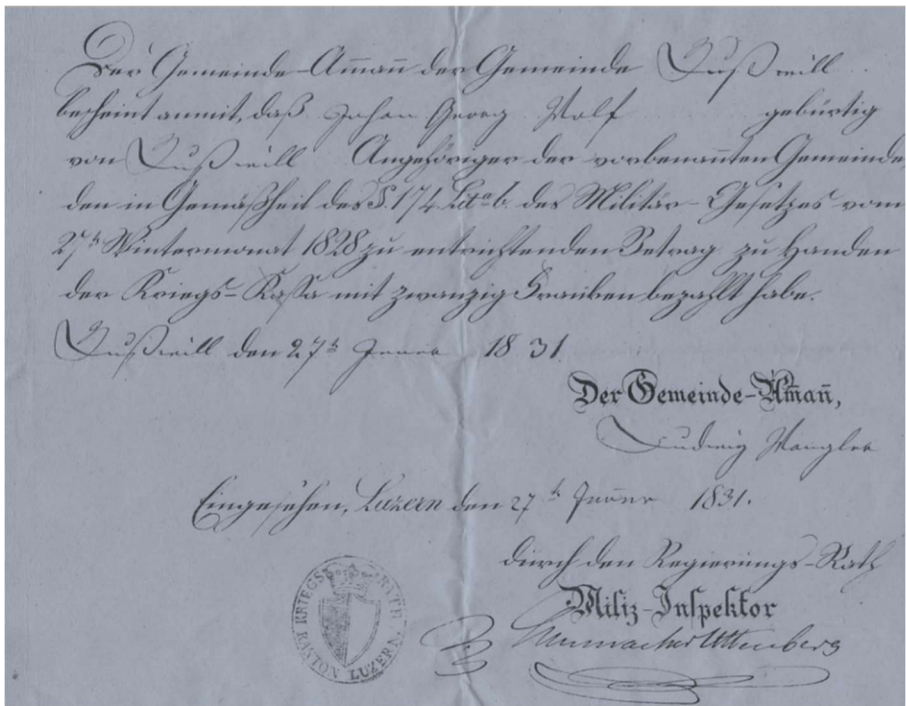 Der Gemeinde-Am̄an̄ der Gemeinde Bußwill
bescheint anmit, daß Johan Georg Wolf gebürtig
von Bußwill Angehöriger der vorbenan̄ten Gemeinde
den in Gemäßheit des §. 174 Lit.ª b. des Militär-Gesetzes vom
27.ᵗ Wintermonat 1828 zu entrichtenden Betrag zu Handen
der Kriegs-Kassa mit zwanzig Franken bezahlt habe.
Bußwill den 27.ᵗ Jenner 1831
Der Gemeinde-Am̄an̄,
Ludwig
Eingesehen, Luzern den 27.ᵗ Jenner 1831.
durch den Regierungs-Rath
Miliz-Inspektor
KRIEGS RATH
KANTON LUZERN